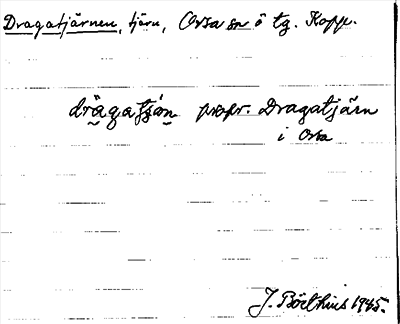 Dragatjärnen, tjärn, Orsa sn ö tg. Kopp.
drägatjän propr. Dragatjärn
i Orsa
J. Boëthius 1945.